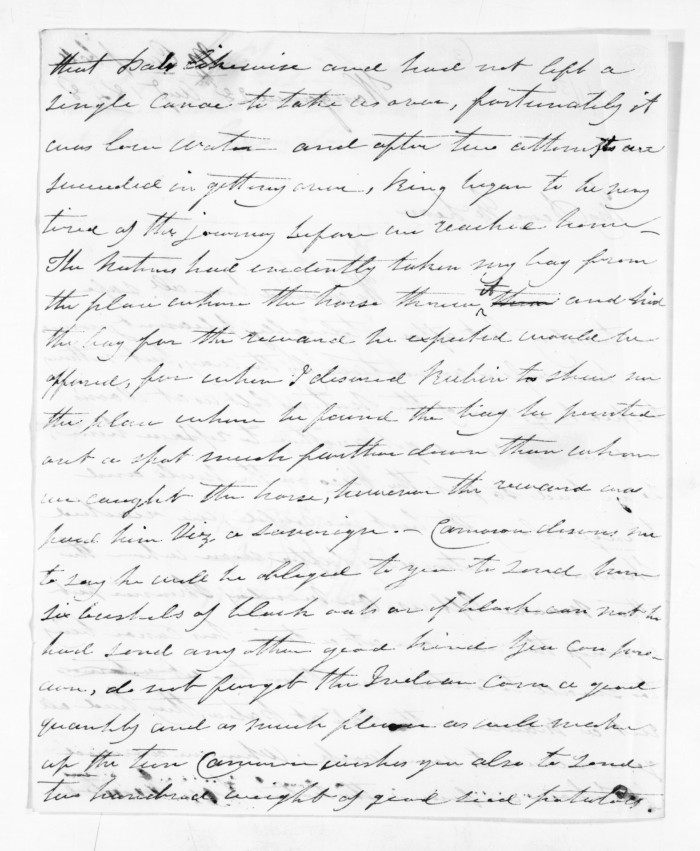 that Pah likewise and had not left a
single canoe to take us over, fortunately it
was low water and after two attempts we
succeeded in getting over, King began to be very
tired of the journey before we reached home_
The Natives had evidently taken my bag from
the place where the horse threw it them and hid
the bag for the reward he expected would be
offered, for when I desired to shew me
the place where he found the bag he pointed
out a spot much further down than where
we caught the horse, however the reward was
paid him Viz. a Sovreign. _ Cameron desires me
to say he will be obliged to you to send him
six bushels of black oats or if black can not be
had send any other good kind you can pro-
cure, do not forget the Indian corn a good
quantity and as much flour as will make
up the tun Cameron wishes you also to send
two hundred weight of good seed potatoes